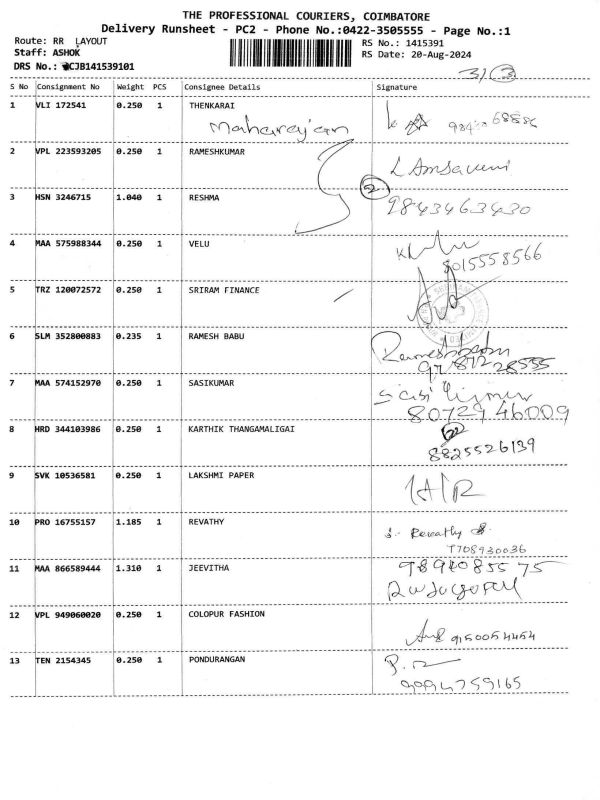 THE PROFESSIONAL COURIERS, COIMBATORE
Delivery Runsheet - PC2 - Phone No.:0422-3505555 - Page No.:1
Route: RR LAYOUT
RS No.: 1415391
Staff: ASHOK
RS Date: 20-Aug-2024
DRS No.: CJB141539101
3/3
S No Consignment No Weight PCS Consignee Details Signature
1 VLI 172541 0.250 1 THENKARAI
Maharajan
2 VPL 223593205 0.250 1 RAMESHKUMAR
L Amsaveni
3 HSN 3246715 1.040 1 RESHMA
2
9843463430
4 MAA 575988344 0.250 1 VELU
8015558566
5 TRZ 120072572 0.250 1 SRIRAM FINANCE
6 SLM 352800883 0.235 1 RAMESH BABU
Rameshbabu
7 MAA 574152970 0.250 1 SASIKUMAR
8072946009
8 HRD 344103986 0.250 1 KARTHIK THANGAMALIGAI
8825526139
9 SVK 10536581 0.250 1 LAKSHMI PAPER
10 PRO 16755157 1.185 1 REVATHY
S. Revathy
7708930036
11 MAA 866589444 1.310 1 JEEVITHA
9894085575
12 VPL 949060020 0.250 1 COLOPUR FASHION
9150054454
13 TEN 2154345 0.250 1 PONDURANGAN
9994759165